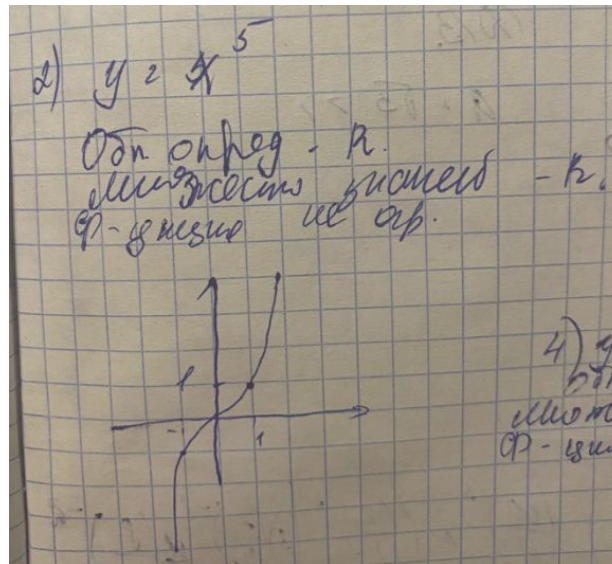 2) y = x^5
Обл опред - R.
Множество значений - R.
Ф-ция не огр.
4) y
1
- 1
мно
Ф-ци